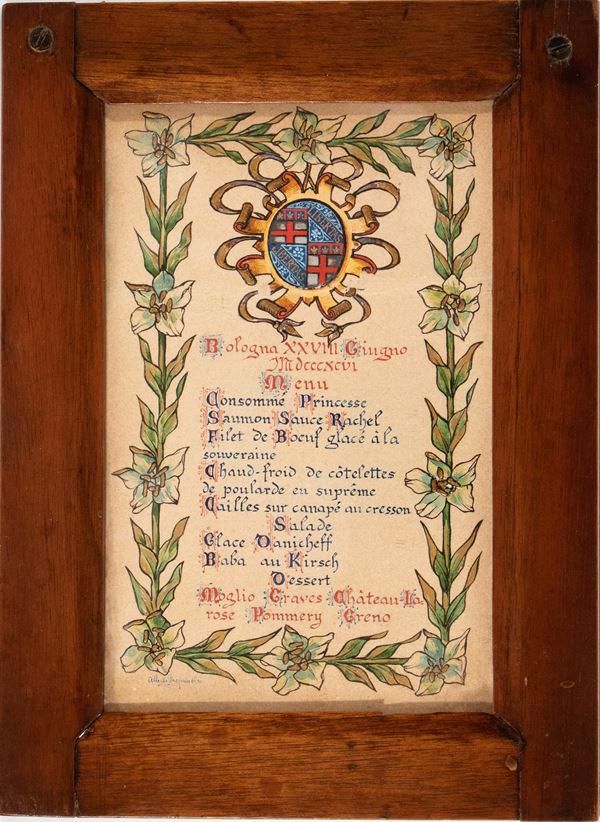 LIBERTAS
LIBERTAS
Bologna XXVIII Giugno
Mdcccxcvi
Menu
Consommé Princesse
Saumon Sauce Rachel
Filet de Boeuf glacé à la
souveraine
Chaud-froid de côtelettes
de poularde en suprême
Cailles sur canapé au cresson
Salade
Glace Danicheff
Baba au Kirsch
Dessert
Moglio Graves Château-La-
rose Pommery Greno